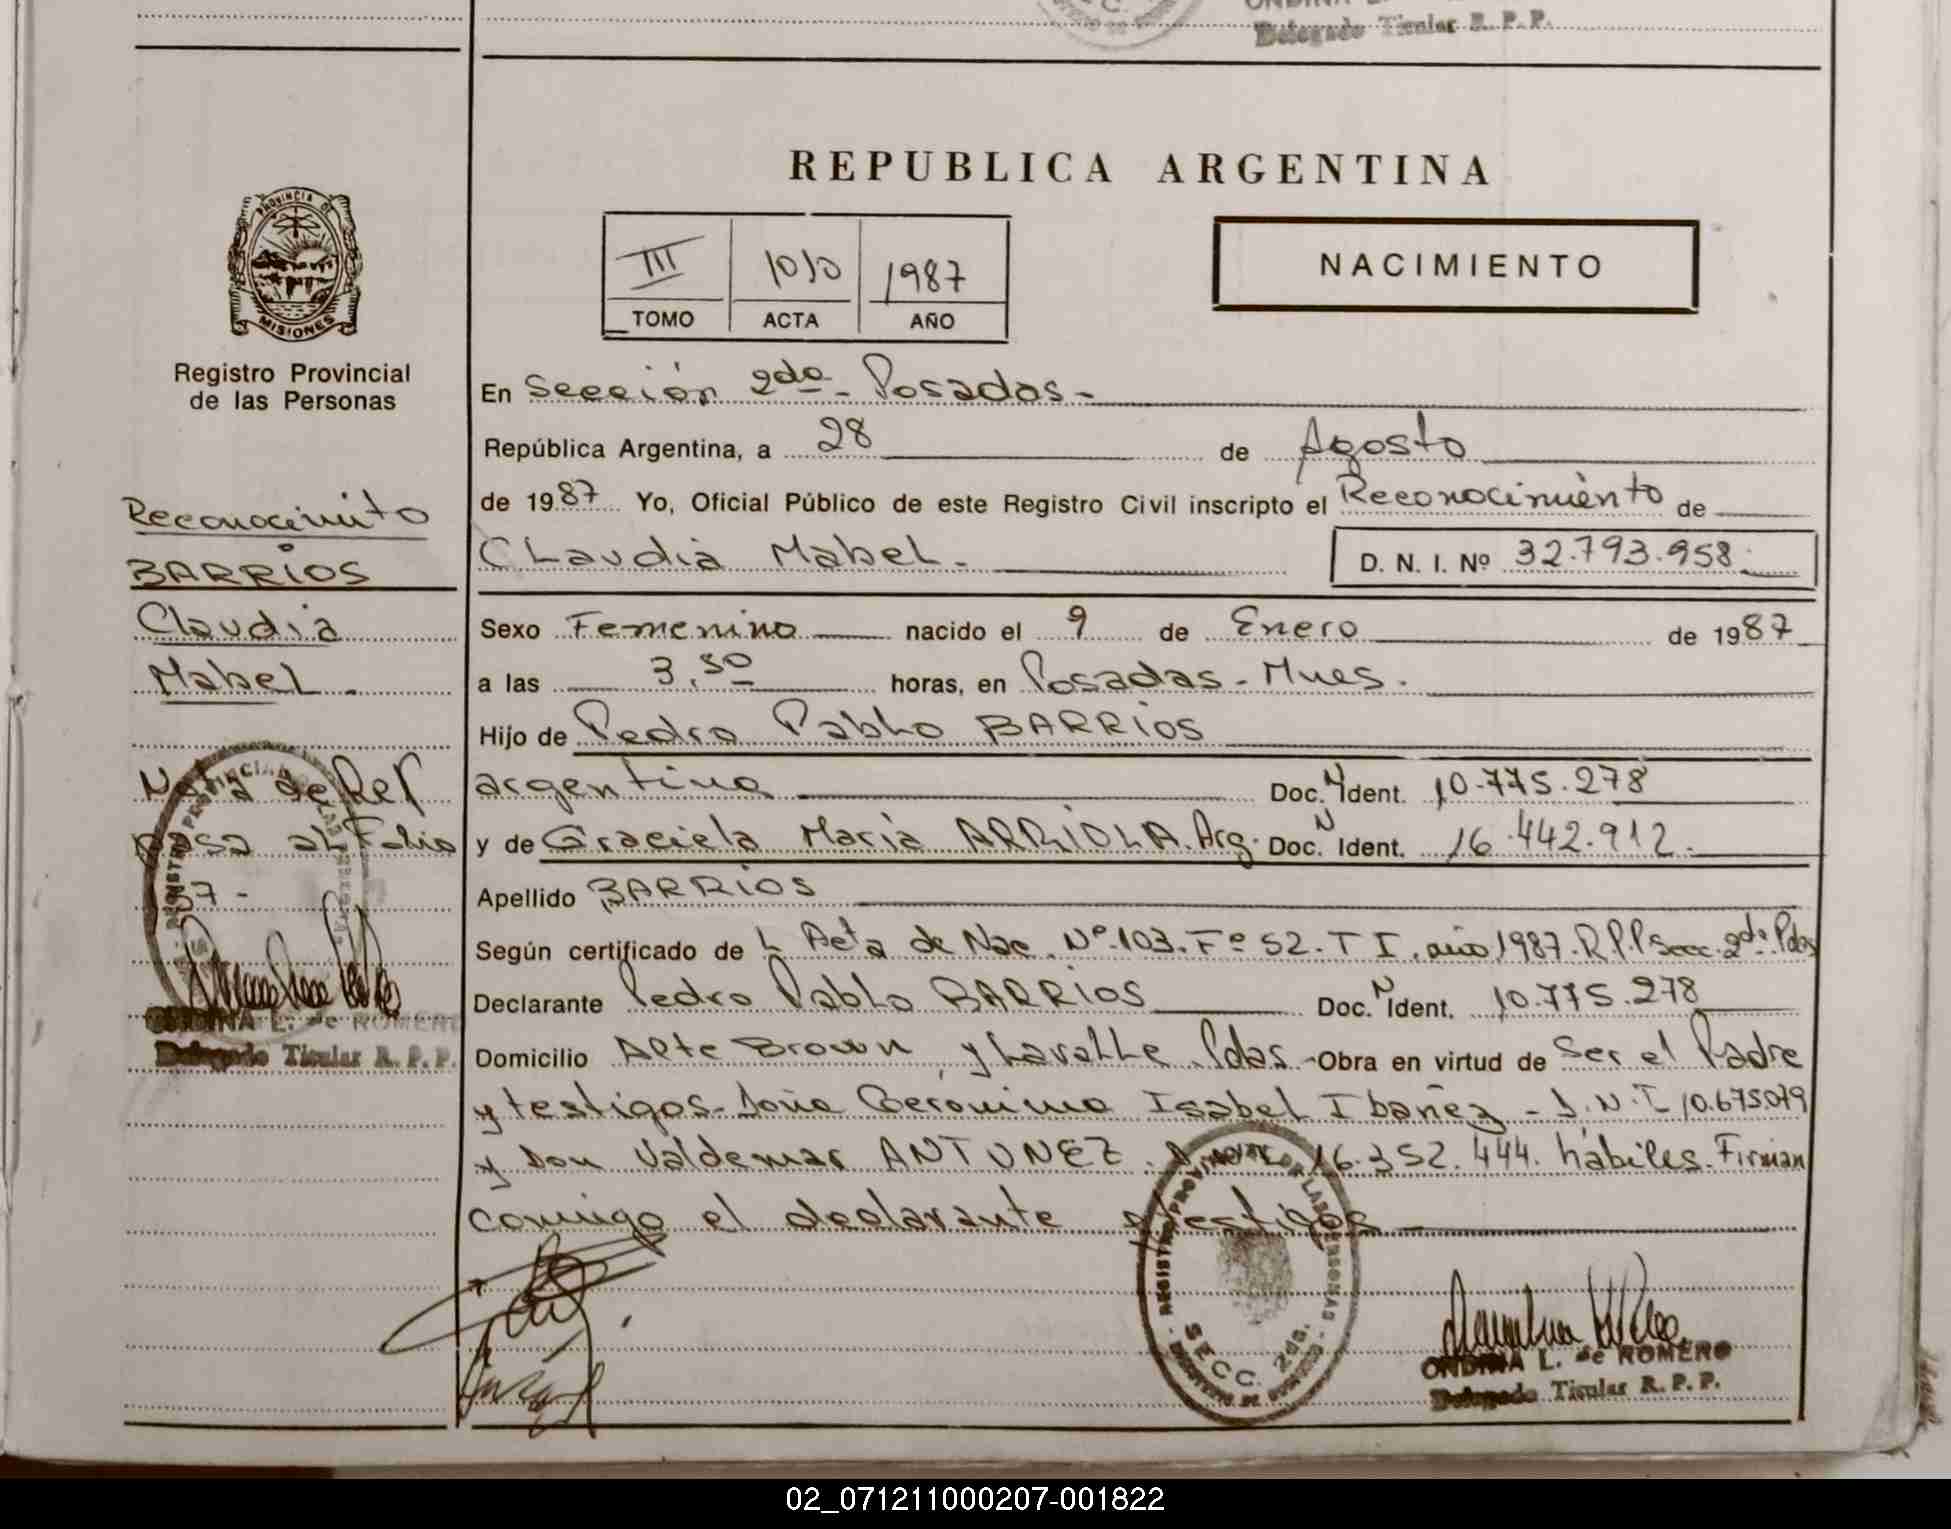 Delegado Titular R. P. P.
REPUBLICA ARGENTINA
PROVINCIA DE
MISIONES
Registro Provincial
de las Personas
III 1010 1987
TOMO ACTA AÑO
NACIMIENTO
En Sección 2da - Posadas -
República Argentina, a 28 de Agosto
de 1987 Yo, Oficial Público de este Registro Civil inscripto el Reconocimiento de
Claudia Mabel. D. N. I. Nº 32.793.958
Sexo Femenino nacido el 9 de Enero de 1987
a las 3,50 horas, en Posadas - Mnes.
Hijo de Pedro Pablo BARRIOS
argentino Doc. N Ident. 10.775.278
y de Graciela Maria ARRIOLA. Arg. Doc. N Ident. 16.442.912.
Apellido BARRIOS
Según certificado de Acta de Nac. Nº 103. Fº 52. T I. año 1987. R.P.P Secc. 2da Pdas
Declarante Pedro Pablo BARRIOS Doc. N Ident. 10.775.278
Domicilio Alte Brown y Lavalle Pdas. Obra en virtud de Ser el Padre
y testigos - Doña Geronima Isabel Ibañez - D.N.I. 10.675.079
y Don Valdemar ANTUNEZ. 16.352.444. hábiles. Firman
conmigo el declarante y testigos
Reconocimito
BARRIOS
Claudia
Mabel.
Nota de Ref
pasa al Folio
ONDINA L. de ROMERO
Delegado Titular R. P. P.
REGISTRO PROVINCIAL DE LAS PERSONAS
SECC. 2da.
ONDINA L. de ROMERO
Delegado Titular R. P. P.
02_071211000207-001822